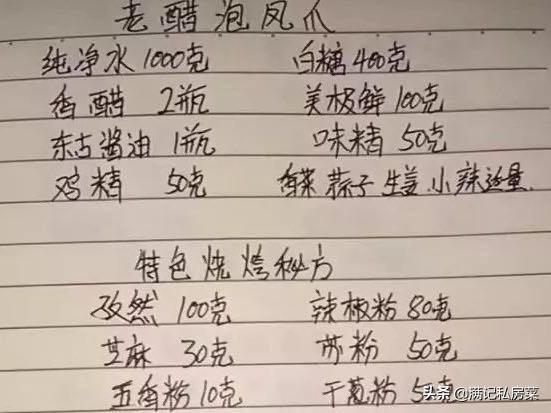 老醋泡凤爪
纯净水 1000克 白糖 400克
香醋 2瓶 美极鲜 100克
东古酱油 1瓶 味精 50克
鸡精 50克 香菜 蒜子 生姜 小辣适量
特色烧烤秘方
孜然 100克 辣椒粉 80克
芝麻 30克 苏粉 50克
五香粉 10克 干葱粉 5克
头条 @满记私房菜